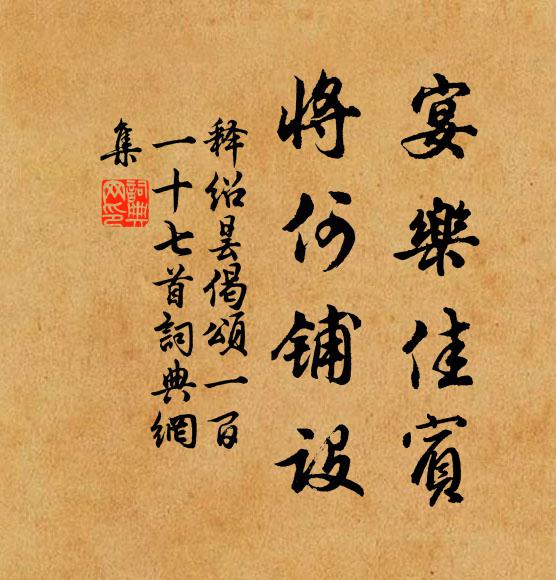 宴樂佳賓
將何鋪設
釋紹曇偈頌一百
一十七首詞典網
集
詞典網印